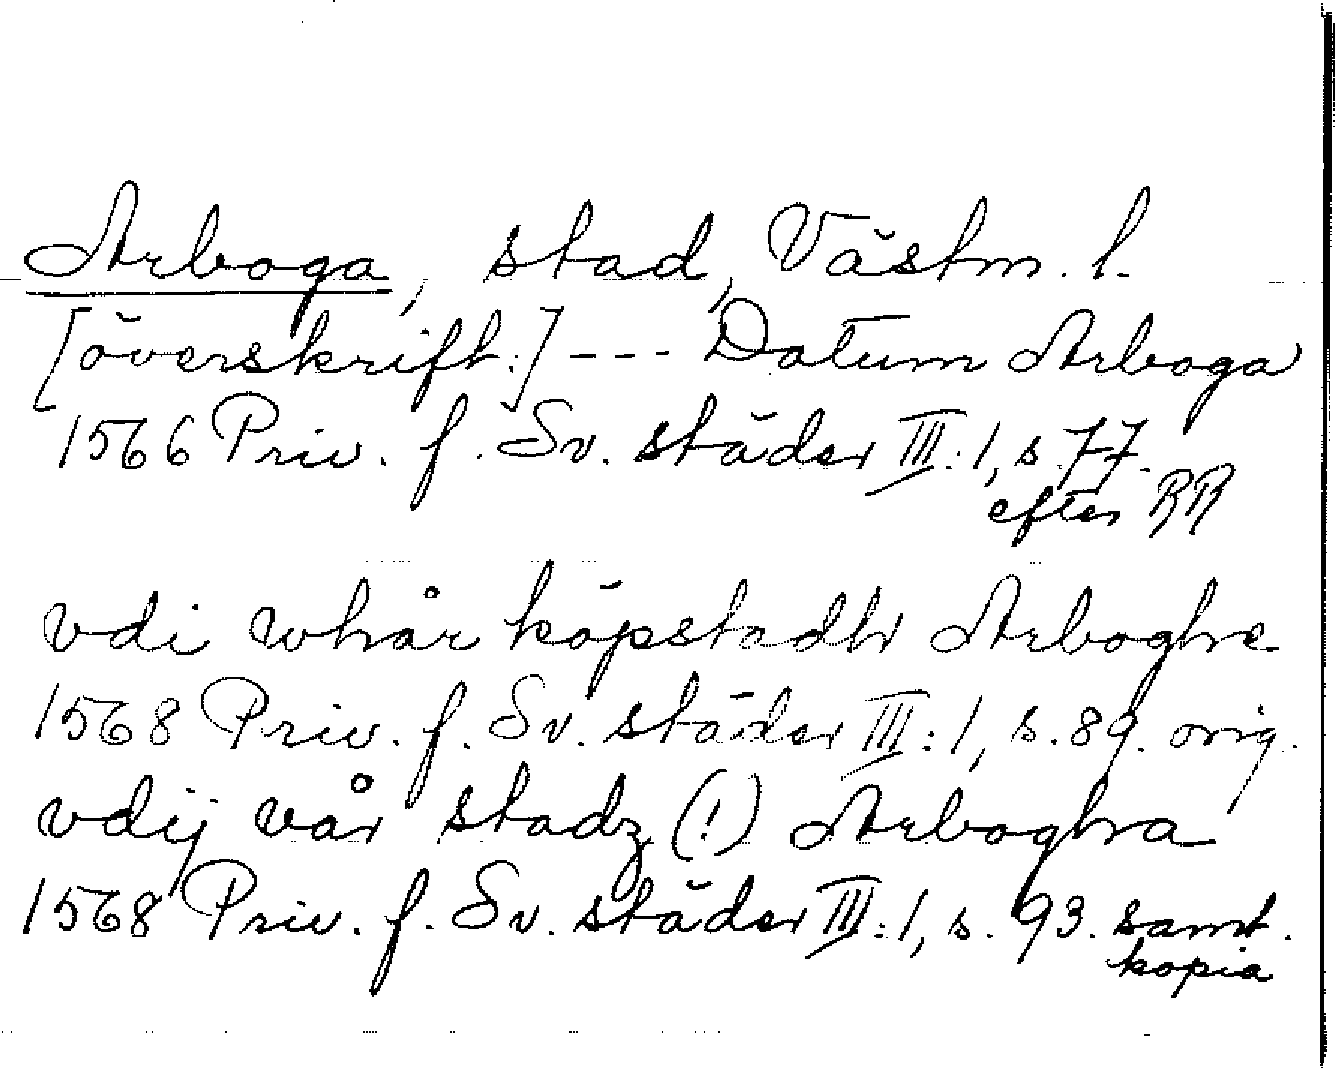 Arboga, stad, Västm. l.
[överskrift:] --- Datum Arboga
1566 Priv. f. Sv. städer III:1, s. 77.
efter RR
vdi whår köpstadh Arboghe
1568 Priv. f. Sv. städer III:1, s. 89. orig.
vdij vår stadz (!) Arbogha
1568 Priv. f. Sv. städer III:1, s. 93. samt.
kopia